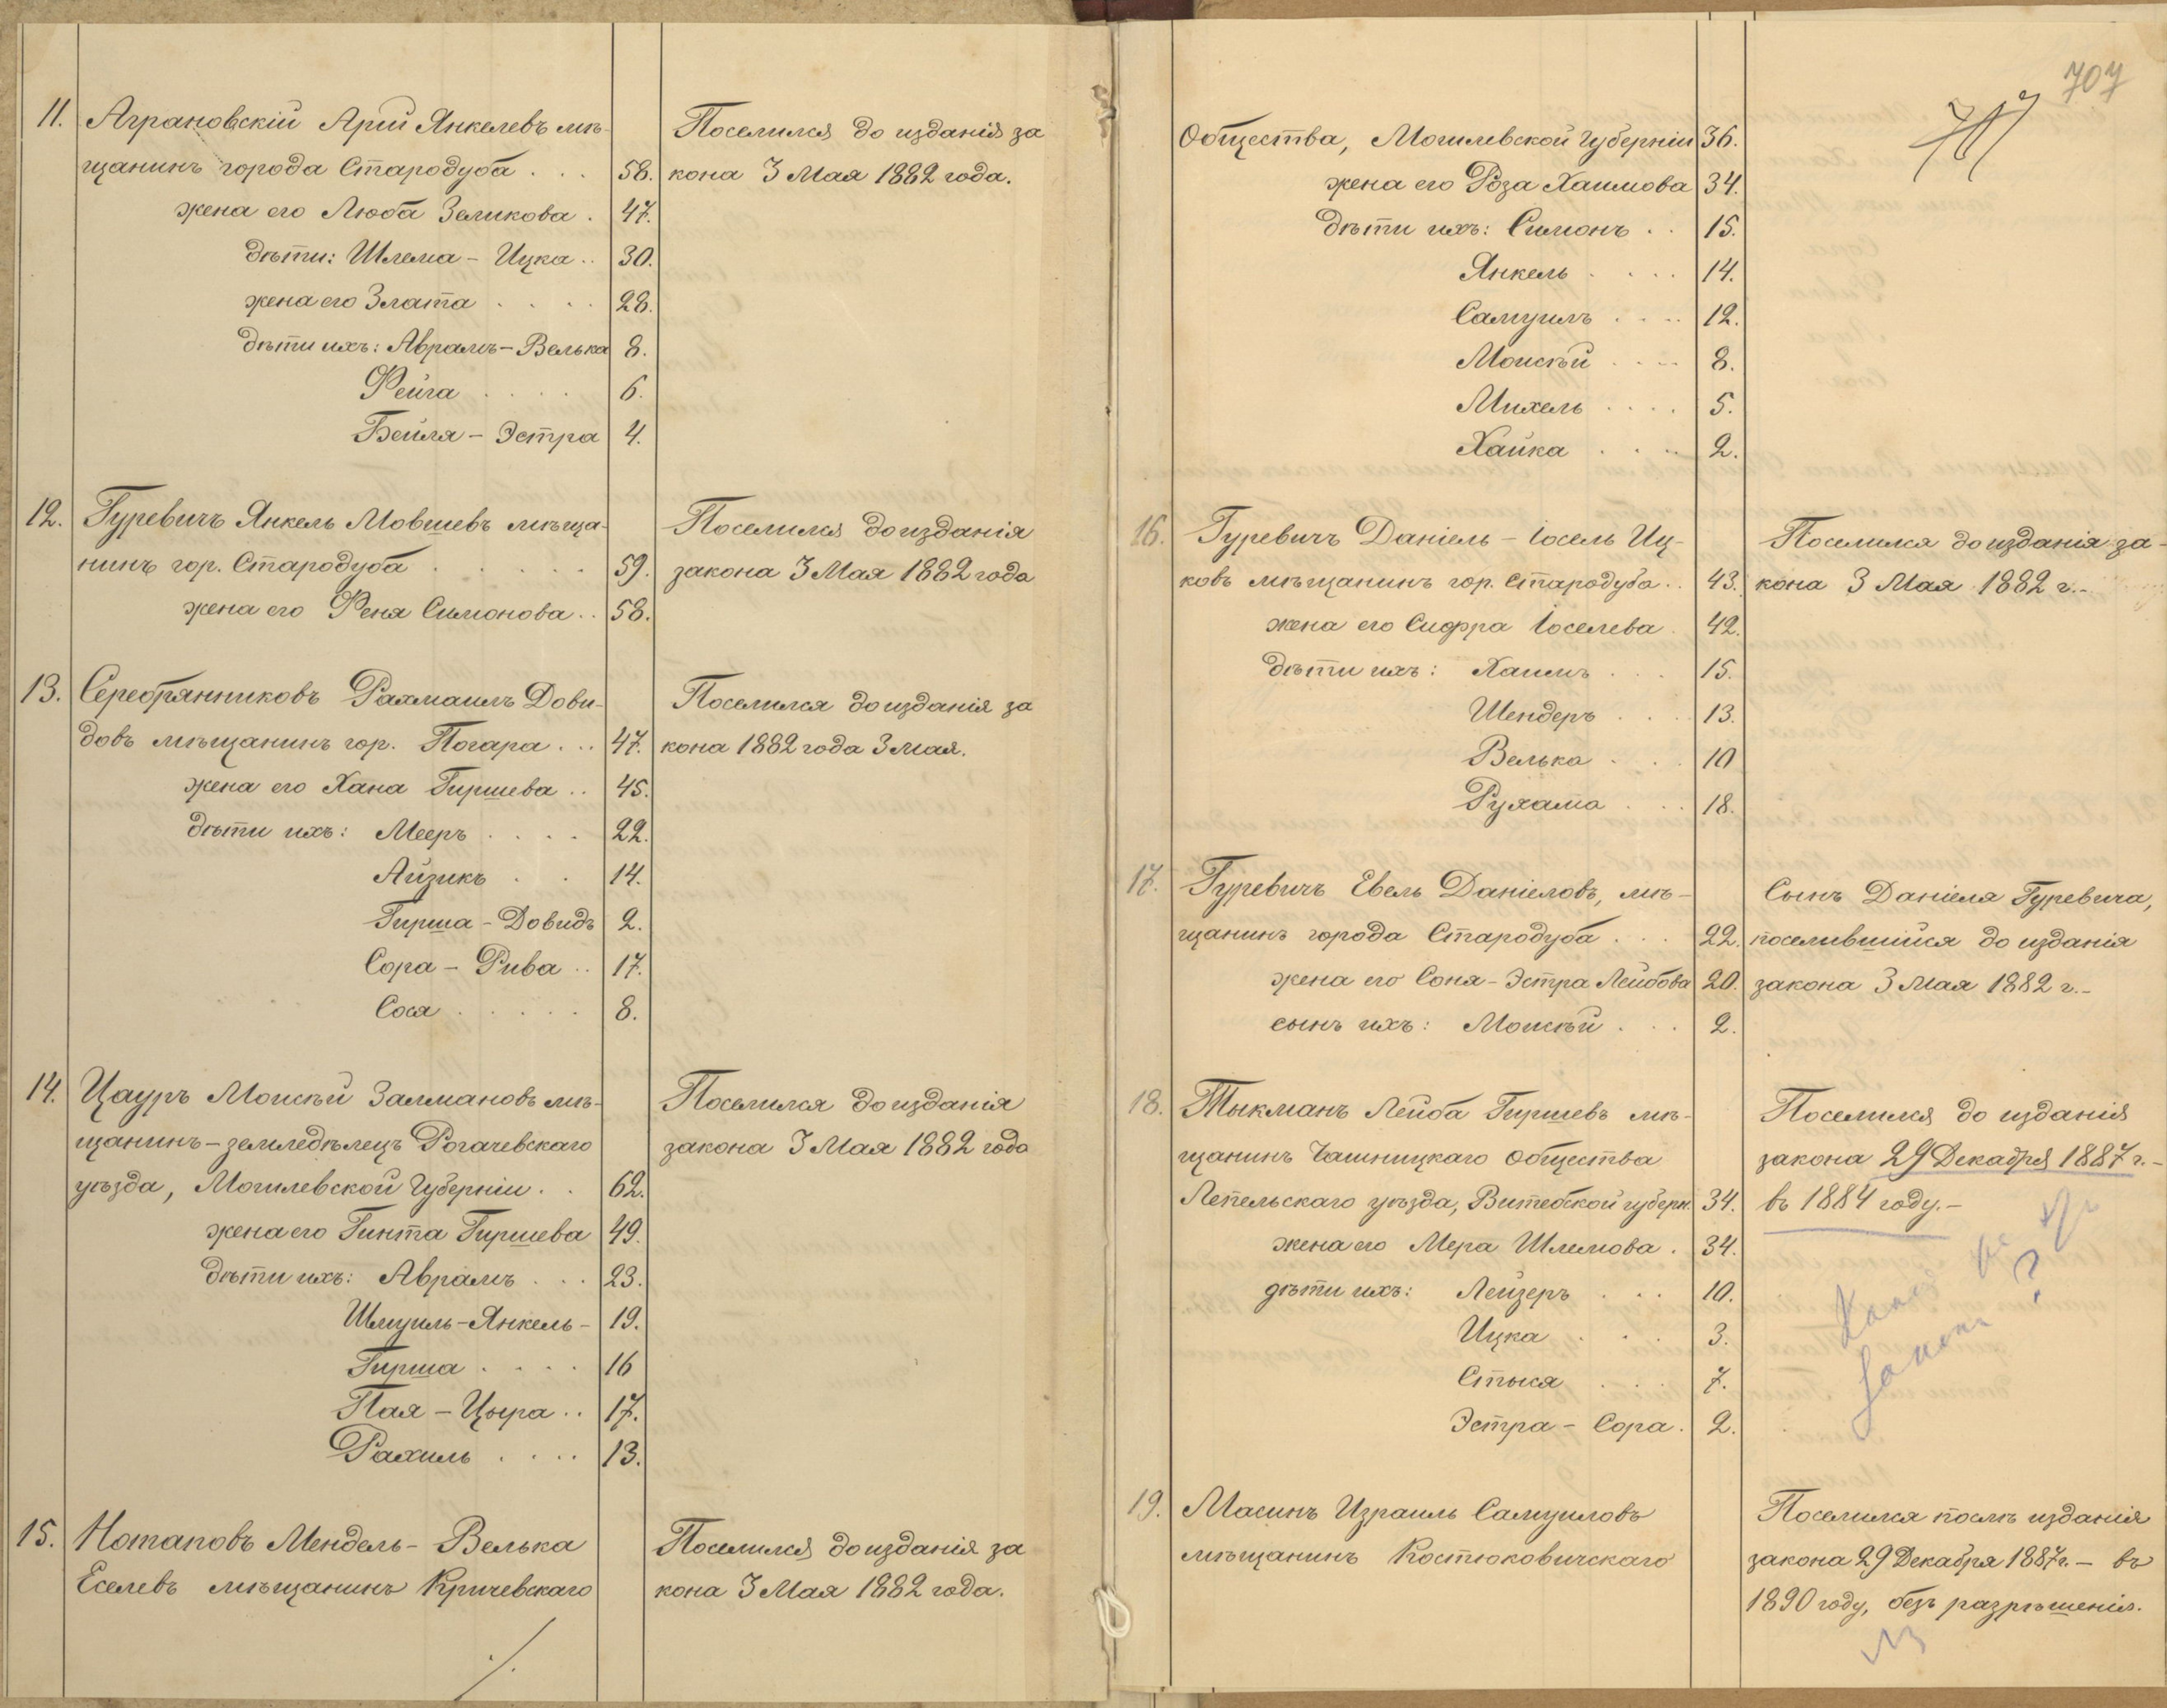 11. Аграновскій Арій Янкелевъ мѣ-
щанинъ города Стародуба . . . 58.
жена его Люба Зеликова . 47.
дѣти: Шлема - Ицка .. 30.
жена его Злата . . . . 28.
дѣти ихъ: Аврамъ - Велька 8.
Фейга . . . . 6.
Бейля - Эстра 4.
Поселился до изданія за
кона 3 Мая 1882 года.
12. Гуревичъ Янкель Мовшевъ мѣща-
нинъ гор. Стародуба . . . . . 59.
жена его Феня Симонова .. 58.
Поселился до изданія
закона 3 Мая 1882 года
13. Серебрянниковъ Рахмаилъ Дови-
довъ мѣщанинъ гор. Погара ... 47.
жена его Хана Гиршева .. 45.
дѣти ихъ: Мееръ . . . . 22.
Айзикъ . . 14.
Гирша - Довидъ 2.
Сора - Рива .. 17.
Сося . . . . . 8.
Поселился до изданія за
кона 1882 года 3 Мая.
14. Цауръ Моисѣй Залмановъ мѣ-
щанинъ - земледѣлецъ Рогачевскаго
уѣзда, Могилевской Губерніи . . 62.
жена его Гинта Гиршева 49.
дѣти ихъ: Аврамъ . . . 23.
Шмуиль - Янкель - 19.
Гирша . . . . 16
Пая - Цыра .. 17.
Рахиль . . . . 13.
Поселился до изданія
закона 3 Мая 1882 года
15. Нотаповъ Мендель - Велька
Еселевъ мѣщанинъ Кричевскаго
Поселился до изданія за
кона 3 Мая 1882 года.
707
Общества, Могилевской Губерніи 36.
жена его Роза Хаимова 34.
дѣти ихъ: Симонъ . . 15.
Янкель . . . . 14.
Самуилъ . . . . 12.
Моисѣй . . . . 8.
Михель . . . . 5.
Хайка . . . . 2.
16. Гуревичъ Даніель - Іосель Иц-
ковъ мѣщанинъ гор. Стародуба .. 43.
жена его Сифра Іоселева . 42.
дѣти ихъ: Хаимъ . . . 15.
Шендеръ . . . 13.
Велька . . . 10
Рухама . . . 18.
Поселился до изданія за-
кона 3 Мая 1882 г. -
17. Гуревичъ Евель Даніеловъ, мѣ-
щанинъ города Стародуба . . . 22.
жена его Соня - Эстра Лейбова 20.
сынъ ихъ: Моисѣй . . . 2.
Сынъ Даніеля Гуревича,
поселившійся до изданія
закона 3 Мая 1882 г. -
18. Тыкманъ Лейба Гиршевъ мѣ-
щанинъ Чашницкаго Общества
Лепельскаго уѣзда, Витебской губерн. 34.
жена его Мера Шлемова . 34.
дѣти ихъ: Лейзеръ . . . 10.
Ицка . . . 3.
Стыся . . . 7.
Эстра - Сора . 2.
Поселился до изданія
закона 29 Декабря 1887 г. -
въ 1884 году. -
?
19. Масинъ Израиль Самуиловъ
мѣщанинъ Костюковичскаго
Поселился послѣ изданія
закона 29 Декабря 1887 г. - въ
1890 году, безъ разрѣшенія.